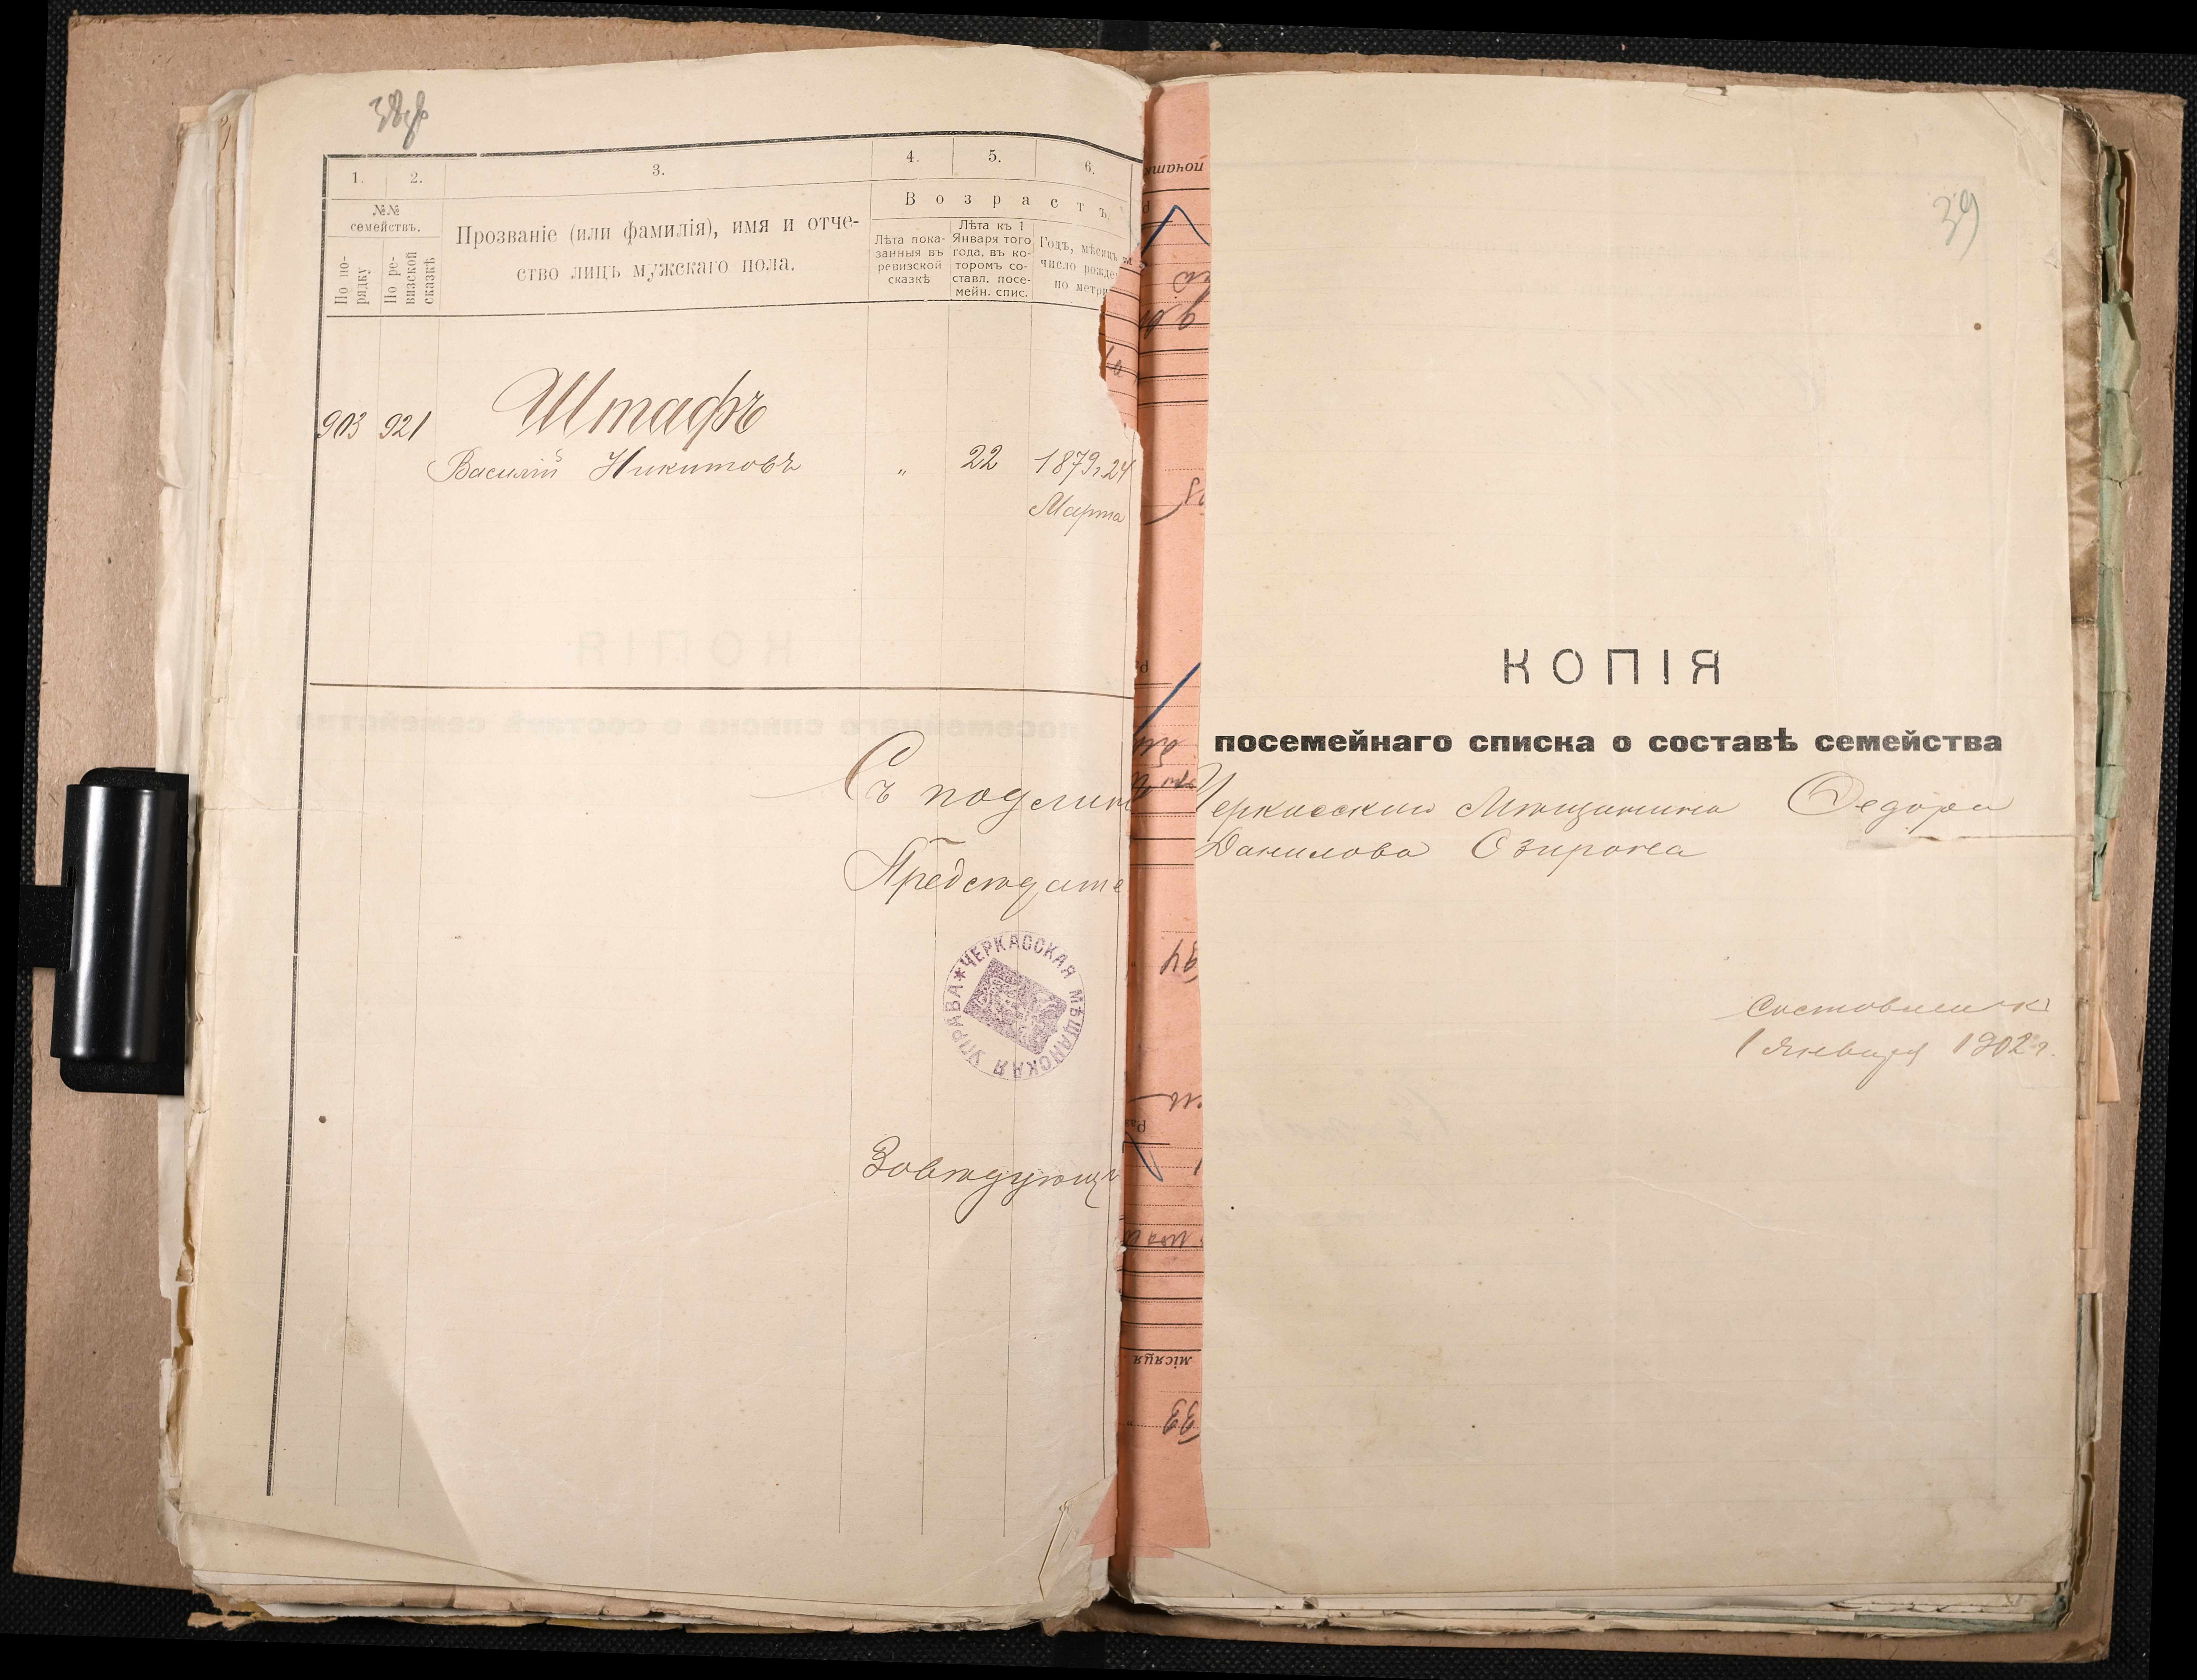 38об
1. 2. 3. 4. 5. 6.
№№ семействъ.
По порядку
По ревизской сказкѣ
Прозваніе (или фамилія), имя и отче-
ство лицъ мужскаго пола.
Возрастъ
Лѣта пока-
занныя въ
ревизской
сказкѣ
Лѣта къ 1
Января того
года, въ ко-
торомъ со-
ставл. посе-
мейн. спис.
Годъ, мѣсяцъ
число рожде
по метри
903 921 Штафъ
Василій Никитовъ „ 22 1879г. 24
Марта
Съ подлин
Предсѣдате
ЧЕРКАССКАЯ МѢЩАНСКАЯ УПРАВА
Завѣдующі
місяця
39
КОПІЯ
посемейнаго списка о составѣ семейства
Черкасскаго Мѣщанина Федора
Данилова Озирона
Составленъ къ
1 Января 1902 г.